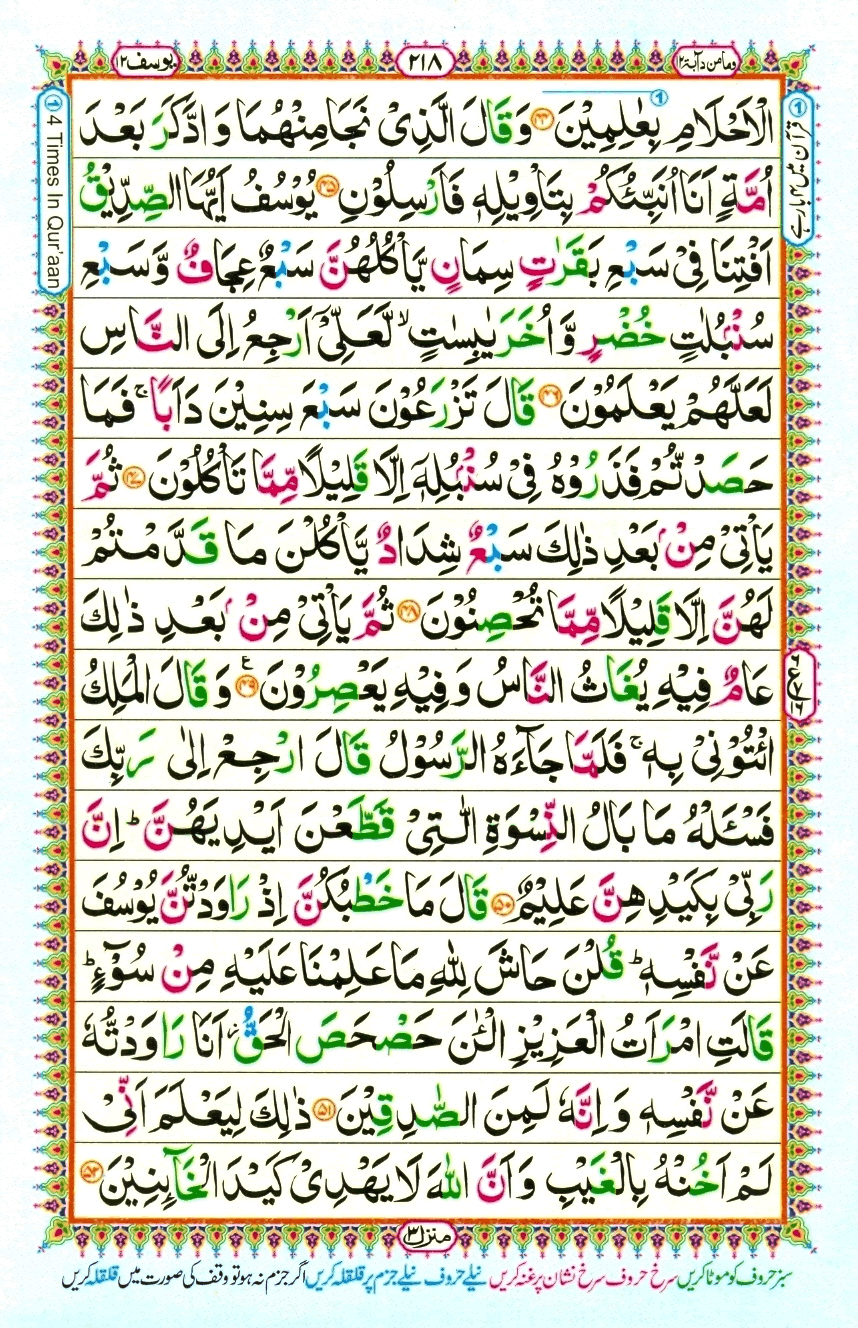 وما من دآبۃ ۱۲
۲۱۸
یوسف ۱۲
الْاَحْلَامِ بِعٰلِمِیْنَ ﴿۴۴﴾ وَقَالَ الَّذِیْ نَجَا مِنْهُمَا وَ ادَّكَرَ بَعْدَ
اُمَّةٍ اَنَا اُنَبِّئُكُمْ بِتَاْوِیْلِهٖ فَاَرْسِلُوْنِ ﴿۴۵﴾ یُوْسُفُ اَیُّهَا الصِّدِّیْقُ
اَفْتِنَا فِیْ سَبْعِ بَقَرٰتٍ سِمَانٍ یَّاْكُلُهُنَّ سَبْعٌ عِجَافٌ وَّ سَبْعِ
سُنْۢبُلٰتٍ خُضْرٍ وَّ اُخَرَ یٰبِسٰتٍ ۙ لَّعَلِّیْۤ اَرْجِعُ اِلَی النَّاسِ
لَعَلَّهُمْ یَعْلَمُوْنَ ﴿۴۶﴾ قَالَ تَزْرَعُوْنَ سَبْعَ سِنِیْنَ دَاَبًا ۚ فَمَا
حَصَدْتُّمْ فَذَرُوْهُ فِیْ سُنْۢبُلِهٖۤ اِلَّا قَلِیْلًا مِّمَّا تَاْكُلُوْنَ ﴿۴۷﴾ ثُمَّ
یَاْتِیْ مِنْۢ بَعْدِ ذٰلِكَ سَبْعٌ شِدَادٌ یَّاْكُلْنَ مَا قَدَّمْتُمْ
لَهُنَّ اِلَّا قَلِیْلًا مِّمَّا تُحْصِنُوْنَ ﴿۴۸﴾ ثُمَّ یَاْتِیْ مِنْۢ بَعْدِ ذٰلِكَ
عَامٌ فِیْهِ یُغَاثُ النَّاسُ وَ فِیْهِ یَعْصِرُوْنَ ﴿۴۹﴾ ع وَ قَالَ الْمَلِكُ
ائْتُوْنِیْ بِهٖ ۚ فَلَمَّا جَآءَهُ الرَّسُوْلُ قَالَ ارْجِعْ اِلٰی رَبِّكَ
فَسْـَٔلْهُ مَا بَالُ النِّسْوَةِ الّٰتِیْ قَطَّعْنَ اَیْدِیَهُنَّ ؕ اِنَّ
رَبِّیْ بِكَیْدِهِنَّ عَلِیْمٌ ﴿۵۰﴾ قَالَ مَا خَطْبُكُنَّ اِذْ رَاوَدْتُّنَّ یُوْسُفَ
عَنْ نَّفْسِهٖ ؕ قُلْنَ حَاشَ لِلّٰهِ مَا عَلِمْنَا عَلَیْهِ مِنْ سُوْٓءٍ ؕ
قَالَتِ امْرَاَتُ الْعَزِیْزِ الْـٰٔنَ حَصْحَصَ الْحَقُّ ؗ اَنَا رَاوَدْتُّهٗ
عَنْ نَّفْسِهٖ وَ اِنَّهٗ لَمِنَ الصّٰدِقِیْنَ ﴿۵۱﴾ ذٰلِكَ لِیَعْلَمَ اَنِّیْ
لَمْ اَخُنْهُ بِالْغَیْبِ وَ اَنَّ اللّٰهَ لَا یَهْدِیْ كَیْدَ الْخَآىِٕنِیْنَ ﴿۵۲﴾
قرآن میں ۴ بار ہے
4 Times In Qur'aan
منزل ۳
سبز حروف کو موٹا کریں سرخ حروف سرخ نشان پر غنہ کریں نیلے حروف نیلے جزم پر قلقلہ کریں اگر جزم نہ ہو تو وقف کی صورت میں قلقلہ کریں